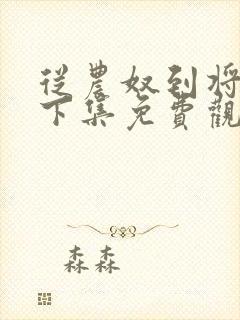 從農奴到將
下集免費觀
森森